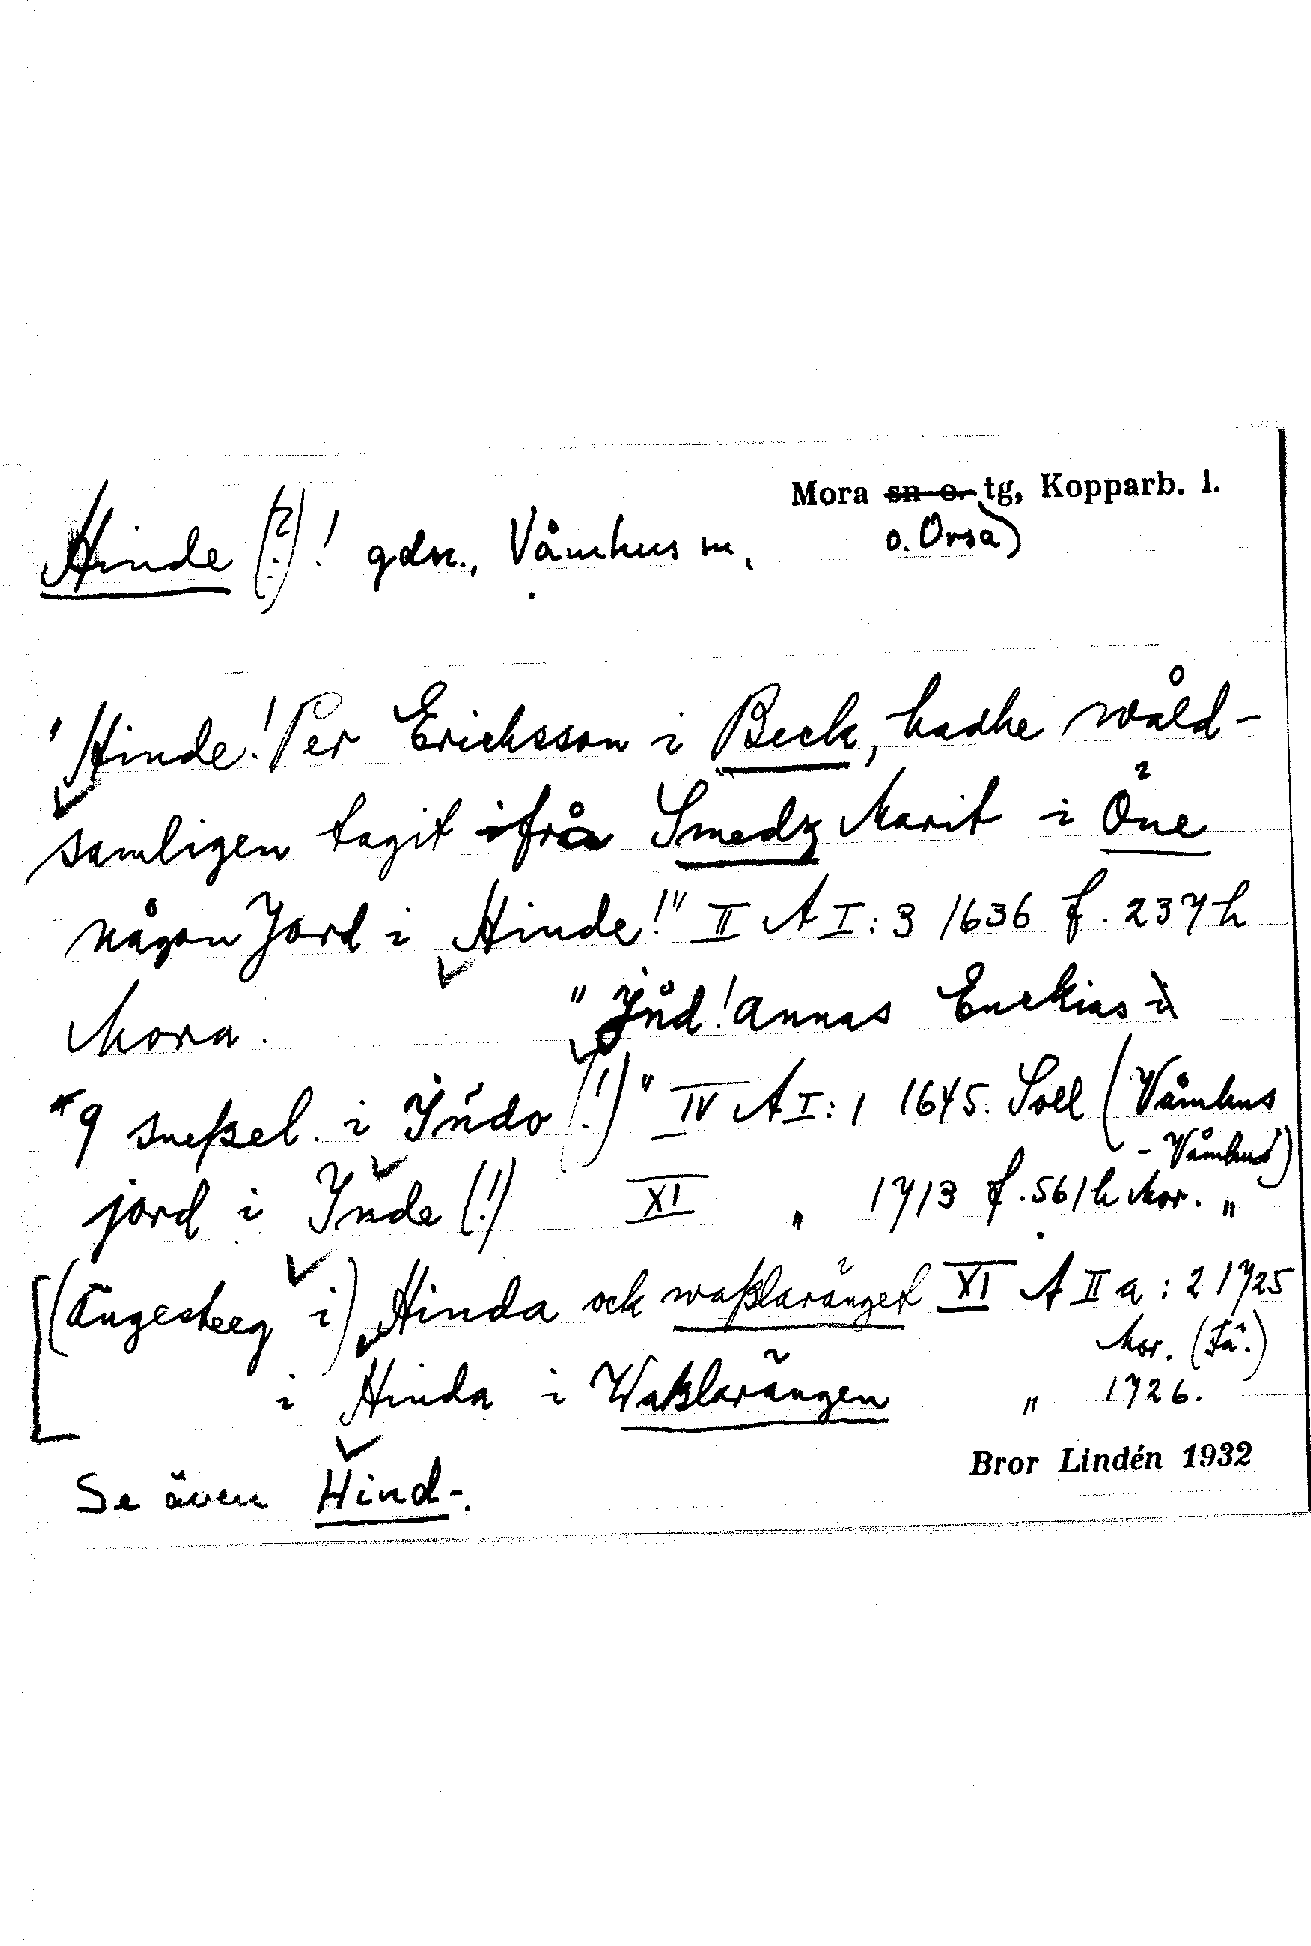 Mora sn o. tg, Kopparb. l.
Hinde (?)! gdn., Våmhus m, o. Orsa)
"Hinde! Per Ericksson i Beck, hadhe wåld-
samligen tagit ifrå Smedz Marit i Öne
någon Jord i Hinde!" II A I: 3 1636 f. 237 h
Mora. "Jnd! Annas Enekias i
9 sneßel. i Jndo (!)" IV A I: 1 1645. Soll (Våmhus
- Våmhus)
jord i Jnde (!) XI " 1713 f. 561 h Mor. "
[(Ängesteeg i) Hinda och waßlaränget XI A II a: 2 1725
Mor. (Fä.)
i Hinda i Waßlarängen " 1726.
Bror Lindén 1932
Se även Hind-.